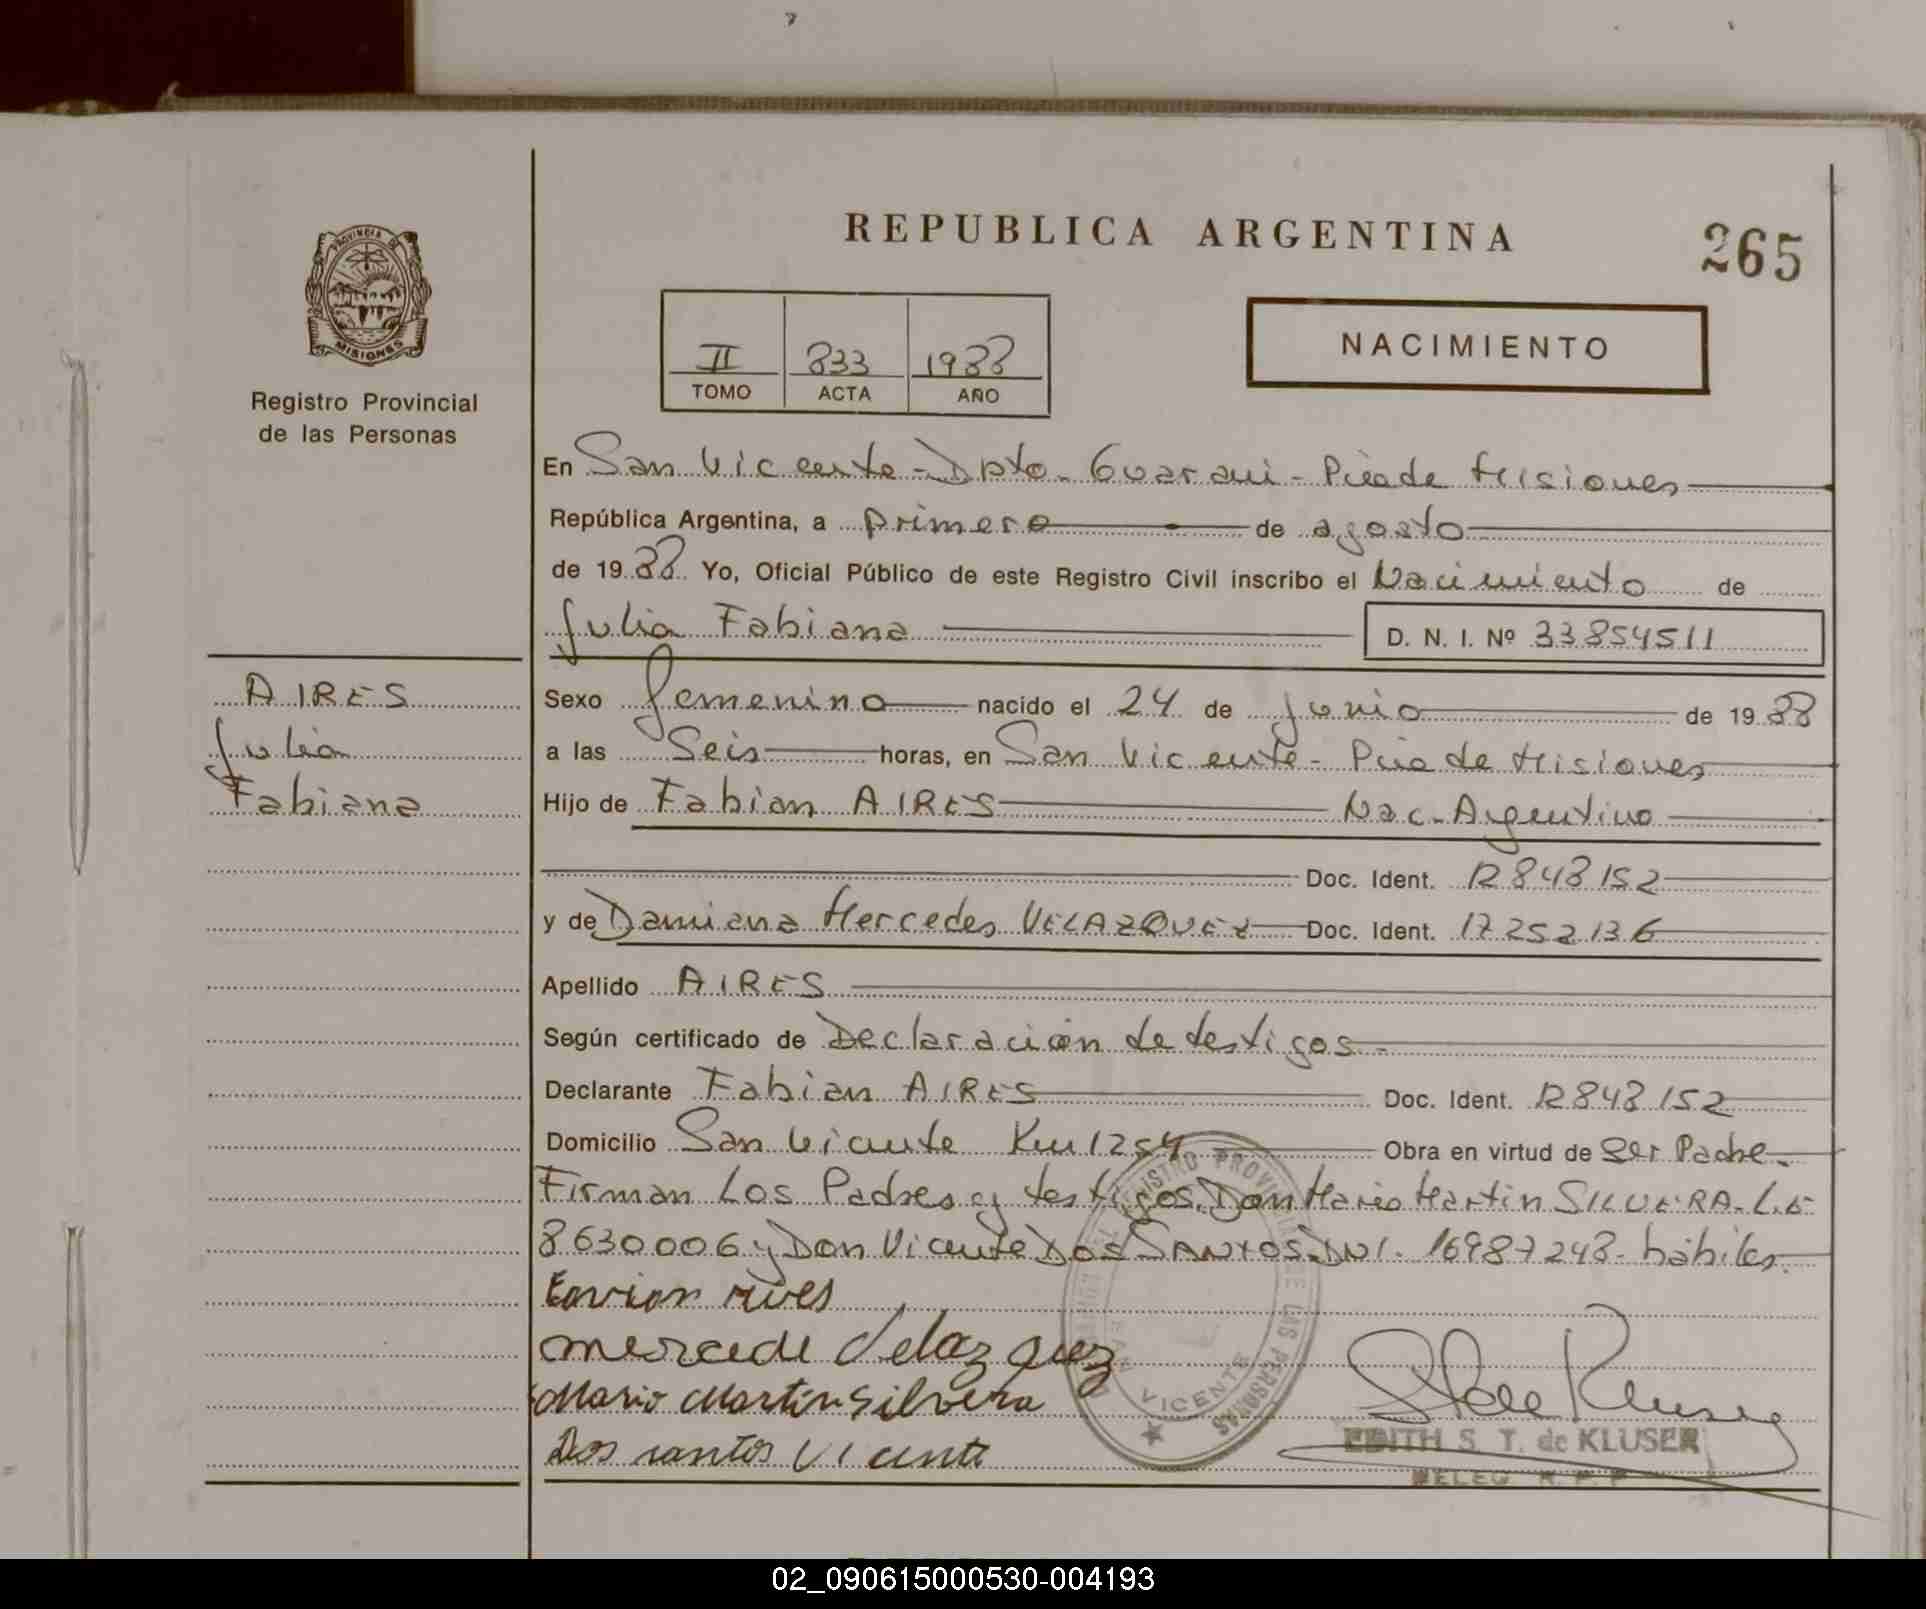 REPUBLICA ARGENTINA
265
PROVINCIA DE
MISIONES
Registro Provincial
de las Personas
II 833 1988
TOMO ACTA AÑO
NACIMIENTO
En San Vicente - Dpto. Guarani - Pcia de Misiones
República Argentina, a primero de agosto
de 1988 Yo, Oficial Público de este Registro Civil inscribo el Nacimiento de
Julia Fabiana D. N. I. Nº 33854511
AIRES
Julia
Fabiana
Sexo femenino nacido el 24 de junio de 1988
a las Seis horas, en San Vicente - Pcia de Misiones
Hijo de Fabian AIRES Nac. Argentino
Doc. Ident. 12848152
y de Damiana Mercedes VELAZQUEZ Doc. Ident. 17252136
Apellido AIRES
Según certificado de Declaración de testigos.
Declarante Fabian AIRES Doc. Ident. 12848152
Domicilio San Vicente Km 1254 Obra en virtud de Ser Padre.
Firman Los Padres y testigos. Don Mario Martin SILVERA - L.E
8630006 y Don Vicente DOS SANTOS. DNI. 16987248. hábiles.
mercede Velazquez
Mario Martin Silvera
Dos santos Vicente
REGISTRO PROVINCIAL DE LAS PERSONAS
VICENTE
EDITH S. T. de KLUSER
DELEG. R. P. P.
02_090615000530-004193